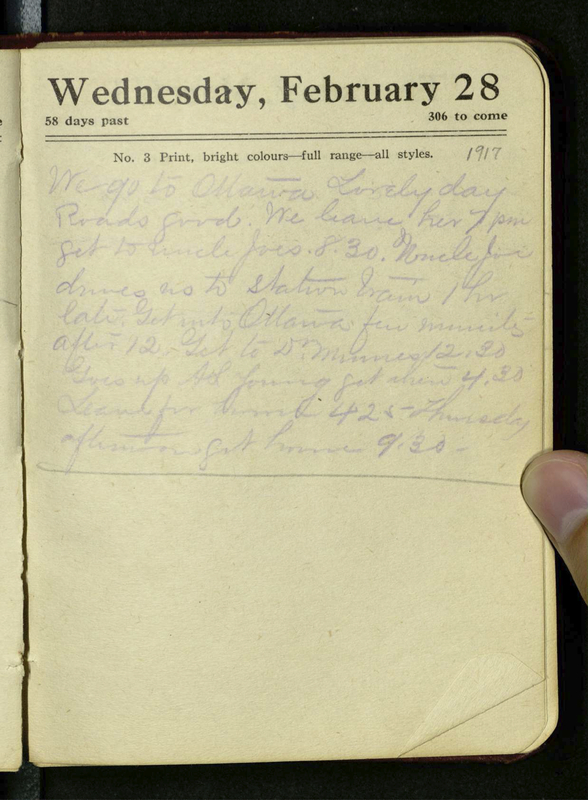 Wednesday, February 28
58 days past 306 to come
No. 3 Print, bright colours—full range—all styles. 1917
We go to Ottawa Lovely day
Roads good. We leave her 7 pm
get to uncle Joes. 8.30. Uncle Joe
drives us to station train 1 hr
late. Get into Ottawa few minutes
after 12 - Get to Dr. Minnes 12.30
Goes up to Young get there 4.30
Leave for home 4 25 - Thursday
afternoon get home 9.30 -